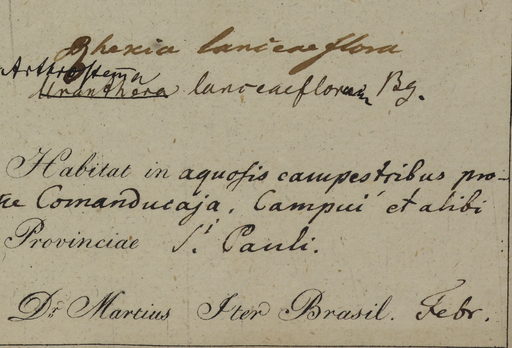 Rhexia lanceaeflora
Arthrostema
Uranthera lanceaeflorum Bg.
Habitat in aquosis campestribus pro-
pe Comanducaja, Campui et alibi
Provinciae St. Pauli.
Dr. Martius Iter Brasil. Febr.